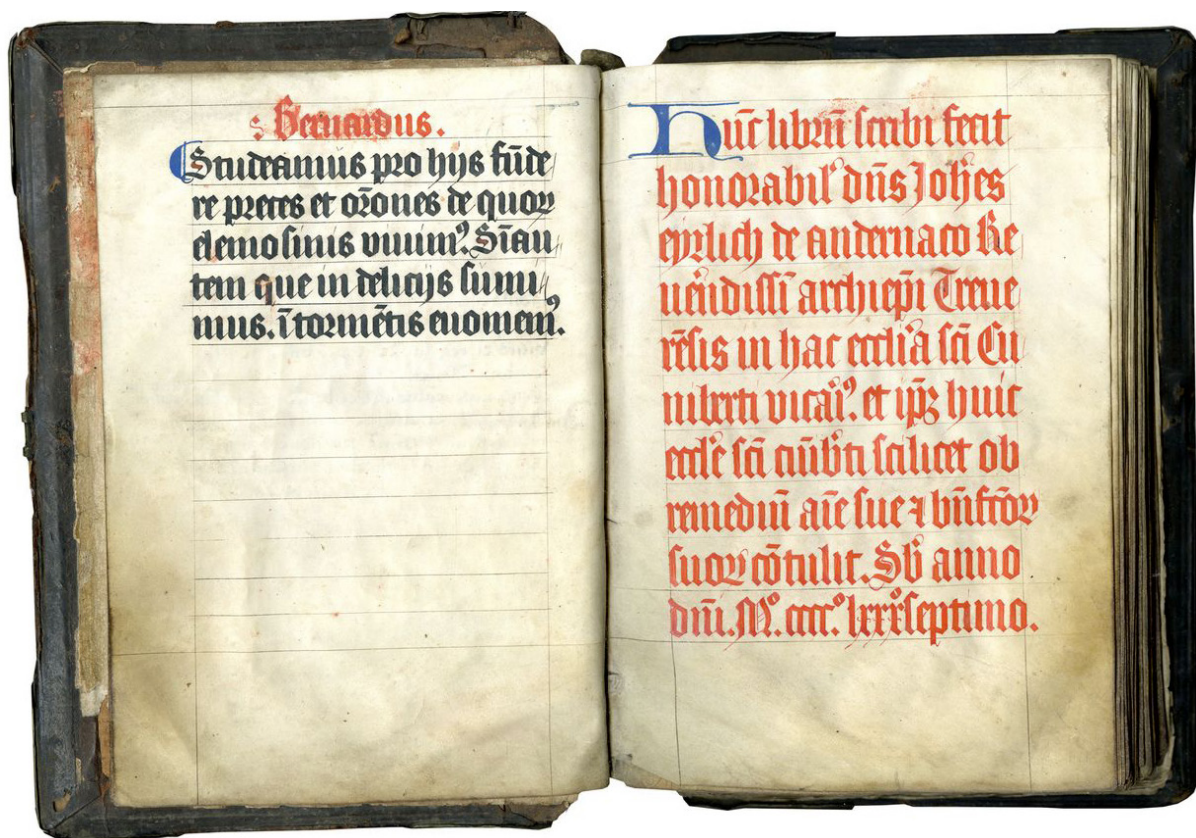 Bernardus.
Studeamus pro hijs fūde
re preces et or̄ones de quoꝝ
elemosinis viuimꝰ. Sīau
tem que in delicijs sumi
mus. ī tormētis euomemꝰ.
Hūc librū scribi fecit
honorabil' dn̄s Joh̄es
eyrlich de andernaco Re
uēndissī archiep̄i Treue
rēsis in hac eccl̄ia sc̄i Cu
niberti vicaīꝰ. et ip̄ꝫ huic
eccl̄e sc̄i cūib̄ti scilicet ob
remediū aīe sue ⁊ bn̄fc̄oꝝ
suoꝝ cōtulit. Sb̄ anno
dn̄i. Mº. cccc.º lxxxºseptimo.